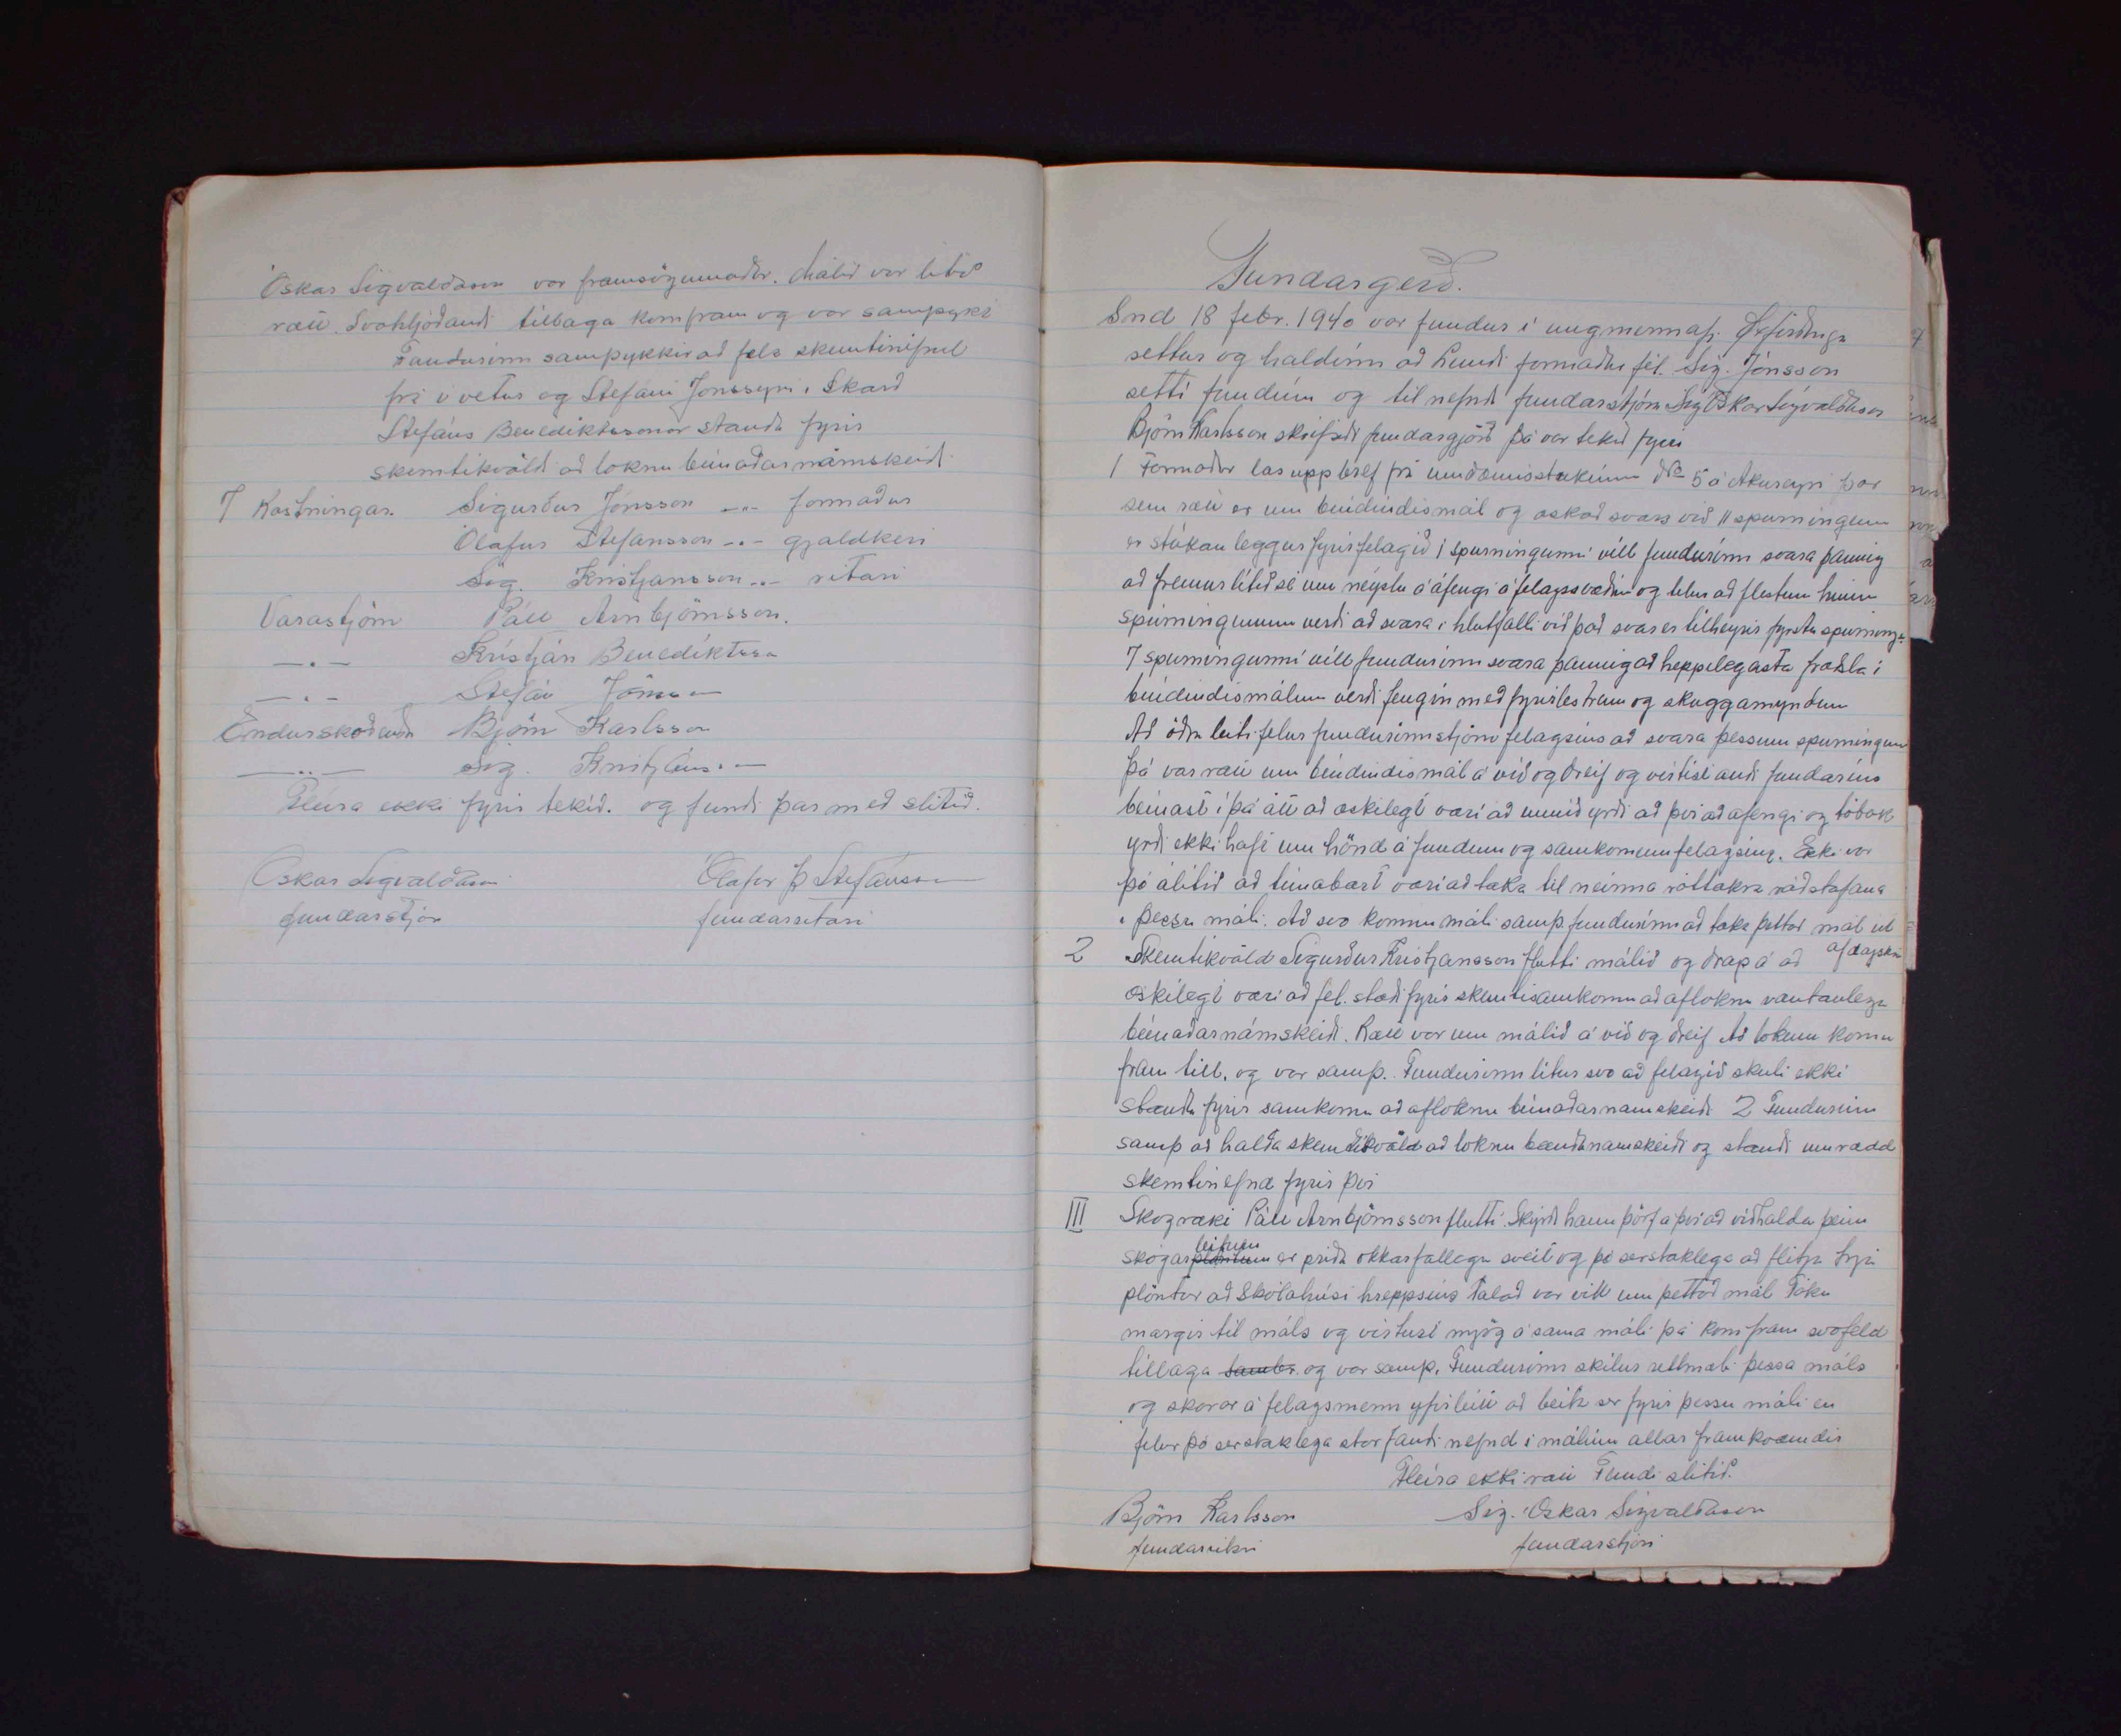 Óskar Sigvaldason var framsögumaður. Málið var lítið
rætt. Svohljóðandi tillaga kom fram og var samþykt
Fundurinn samþykkir að fela skemtinefnd
frá í vetur og Stefáni Jónssyni, Skarð
Stefáns Benediktssonar standa fyrir
skemtikvöldi að loknu búnaðarnámskeiði
7 Kostningar. Sigurður Jónsson -„- formaður
Ólafur Stefánsson -„- gjaldkeri
Sig. Kristjansson -„- ritari
Varastjórn Páll Arnbjörnsson.
—„— Kristján Benediktsson
—„— Stefán Jónsson
Endurskoðendr Björn Karlsson
—„— Sig. Kristjánsson
Fleira ekki fyrir tekið. og fundi þar með slitið.
Óskar Sigvaldason Ólafur Þ Stefánsson
fundarstjór fundarritari
Fundargerð.
Snd 18 febr. 1940 var fundur i ungmennaf. Öxfirðinga
settur og haldinn að Lundi formaður fél. Sig. Jónsson
setti fundinn og til nefndi fundarstjóra Sig Óskar Sigvaldason
Björn Karlsson skrifaði fundargjörð Þá var tekið fyrir
1 Formaður las upp bréf frá umdæmisstúkunni No 5 á Akureyri þar
sem rætt er um bindindismál og óskað svars við 11 spurningum
er stúkan leggur fyrir félagið 1 spurningunni vill fundurinn svara þannig
að fremur lítið sé um neyslu á áfengi á félagssvæðinu og telur að flestum hinum
spurningunum verði að svara i hlutfalli við það svar er tilheyrir fyrstu spurningu.
7 spurningunni vill fundurinn svara þannig að heppilegasta fræðsla i
bindindismálum verði fengin með fyrirlestrum og skuggamyndum
Að öðru leiti felur fundurinn stjórn félagsins að svara þessum spurningum
Þá var rætt um bindindismál á við og dreif og virtist andi fundarins
beinast í þá átt að æskilegt væri að unnið yrði að því að áfengi og tóbak
yrði ekki haft um hönd á fundum og samkomum félagsins. Ekki var
þó álitið að tímabært væri að taka til neinna róttækra ráðstafana
i þessu máli. Að svo komnu máli samþ. fundurinn að taka þettað mál út
af dagskrá
2 Skemtikvöld Sigurður Kristjansson flutti málið og drap á að
æskilegt væri að fél. stæði fyrir skemtisamkomu að afloknu væntanlegu
búnaðarnámskeiði. Rætt var um málið á við og dreif Að lokum komu
fram till. og var samþ. Fundurinn litur svo að félagið skuli ekki
standa fyrir samkomu að afloknu búnaðarnamskeiði 2 Fundurinn
samþ að halda skemtikvöld að loknu bændanamskeiði og standi umrædd
skemtinefnd fyrir því
III Skógrækt Páll Arnbjörnsson flutti. Skýrði hann þörf á því að viðhalda þeim
skógarplöntum leifum er prýða okkar fallegu sveit og þó serstaklega að flitja trjá
plöntur að Skólahúsi hreppsins Talað var vitt um þettað mál Tóku
margir til máls og virtust mjög á sama máli þá kom fram svofeld
tillaga og var samþ. Fundurinn skilur rettmæti þessa máls
og skorar á felagsmenn yfirleitt að beita ser fyrir þessu máli en
felur þó serstaklega starfandi nefnd i málinu allar framkvæmdir
Fleira ekki rætt Fundi slitið.
Björn Karlsson Sig. Óskar Sigvaldason
fundarritari fundarstjóri